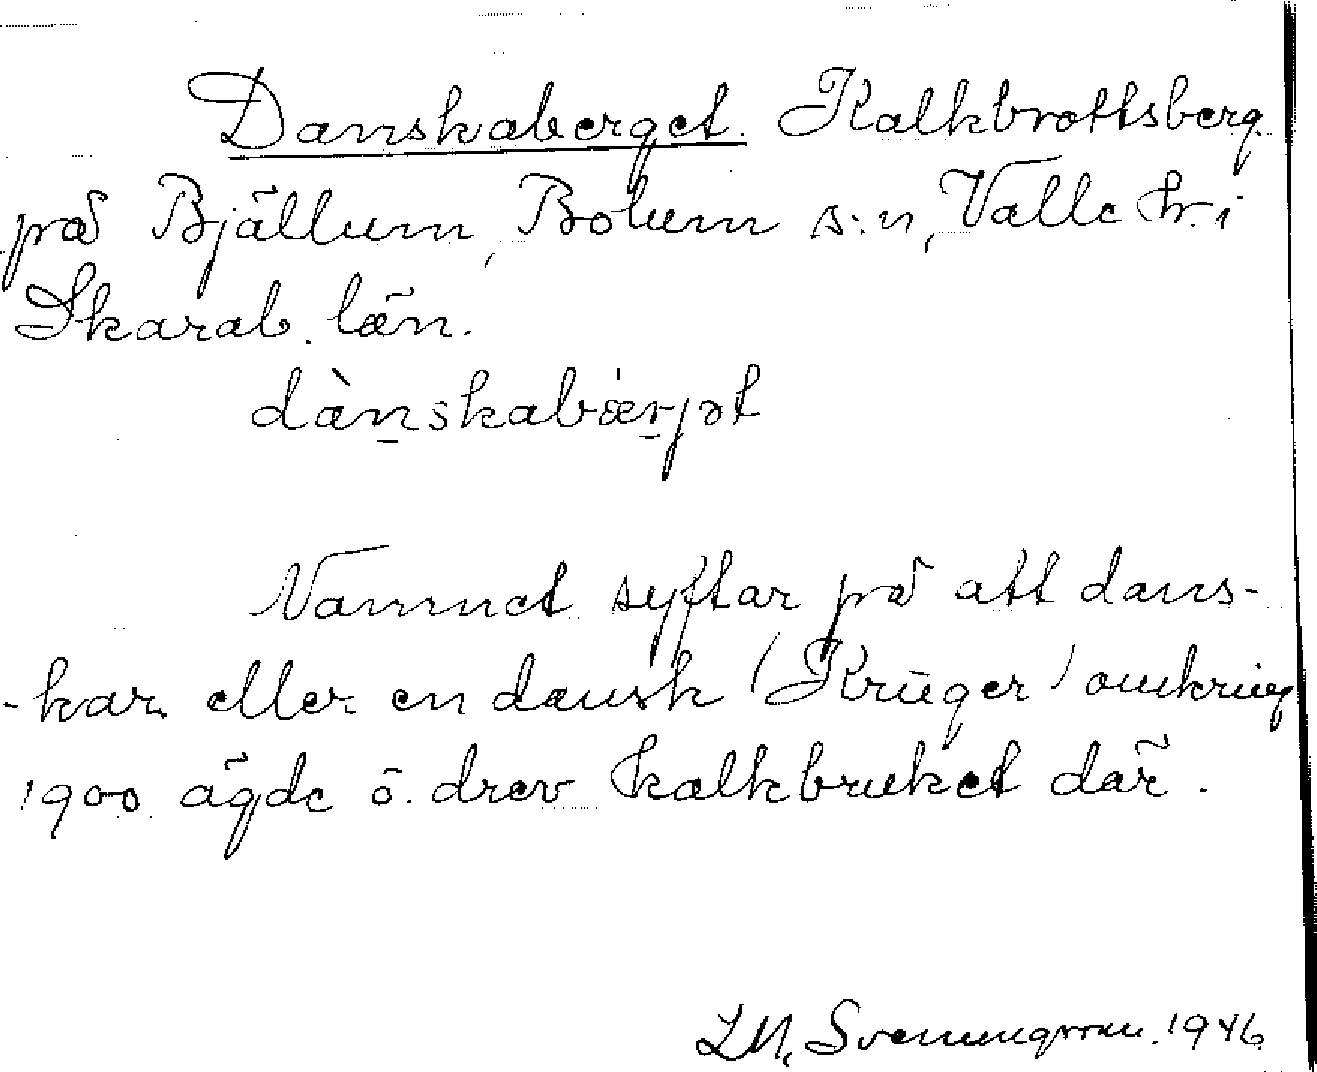 Danskaberget. Kalkbrottsberg
på Bjällum, Bolum s:n, Valle hr. i
Skarab. län.
dànskabærjət
Namnet syftar på att dans-
-kar eller en dansk (Krüger) omkring
1900 ägde o. drev kalkbruket där.
Svenungsson. 1946